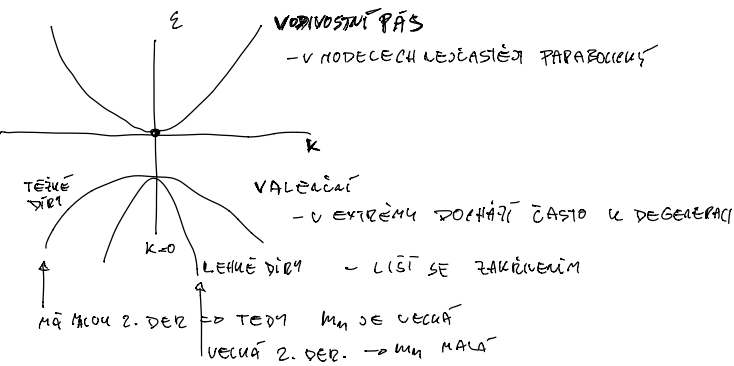 ε
VODIVOSTNÍ PÁS
- V MODELECH NEJČASTĚJI PARABOLICKÝ
K
TĚŽKÉ
DÍRY
VALENČNÍ
- V EXTRÉMU DOCHÁZÍ ČASTO K DEGENERACI
K=0
LEHKÉ DÍRY - LIŠÍ SE ZAKŘIVENÍM
MÁ MALOU 2. DER => TEDY m_n JE VELKÁ
VELKÁ 2. DER. → m_n MALÁ